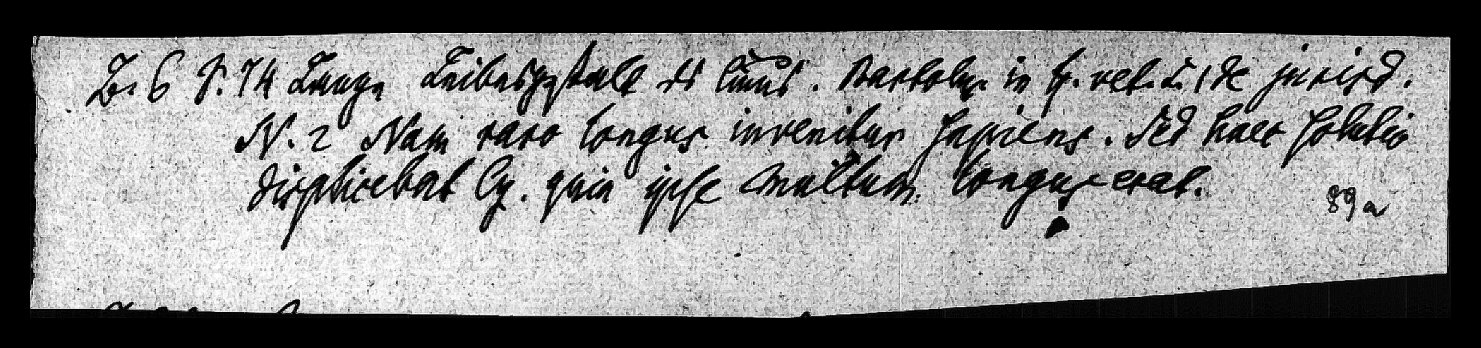 Z. 6 S. 74 Lange Leibesgestalt des Cinus. Bartolus in h. vet. L. 1 de jurisd.
N. 2 Nam raro longus invenitur sapiens. Sed haec solutio
displicebat Cy. quia ipse multum longus erat.
89a